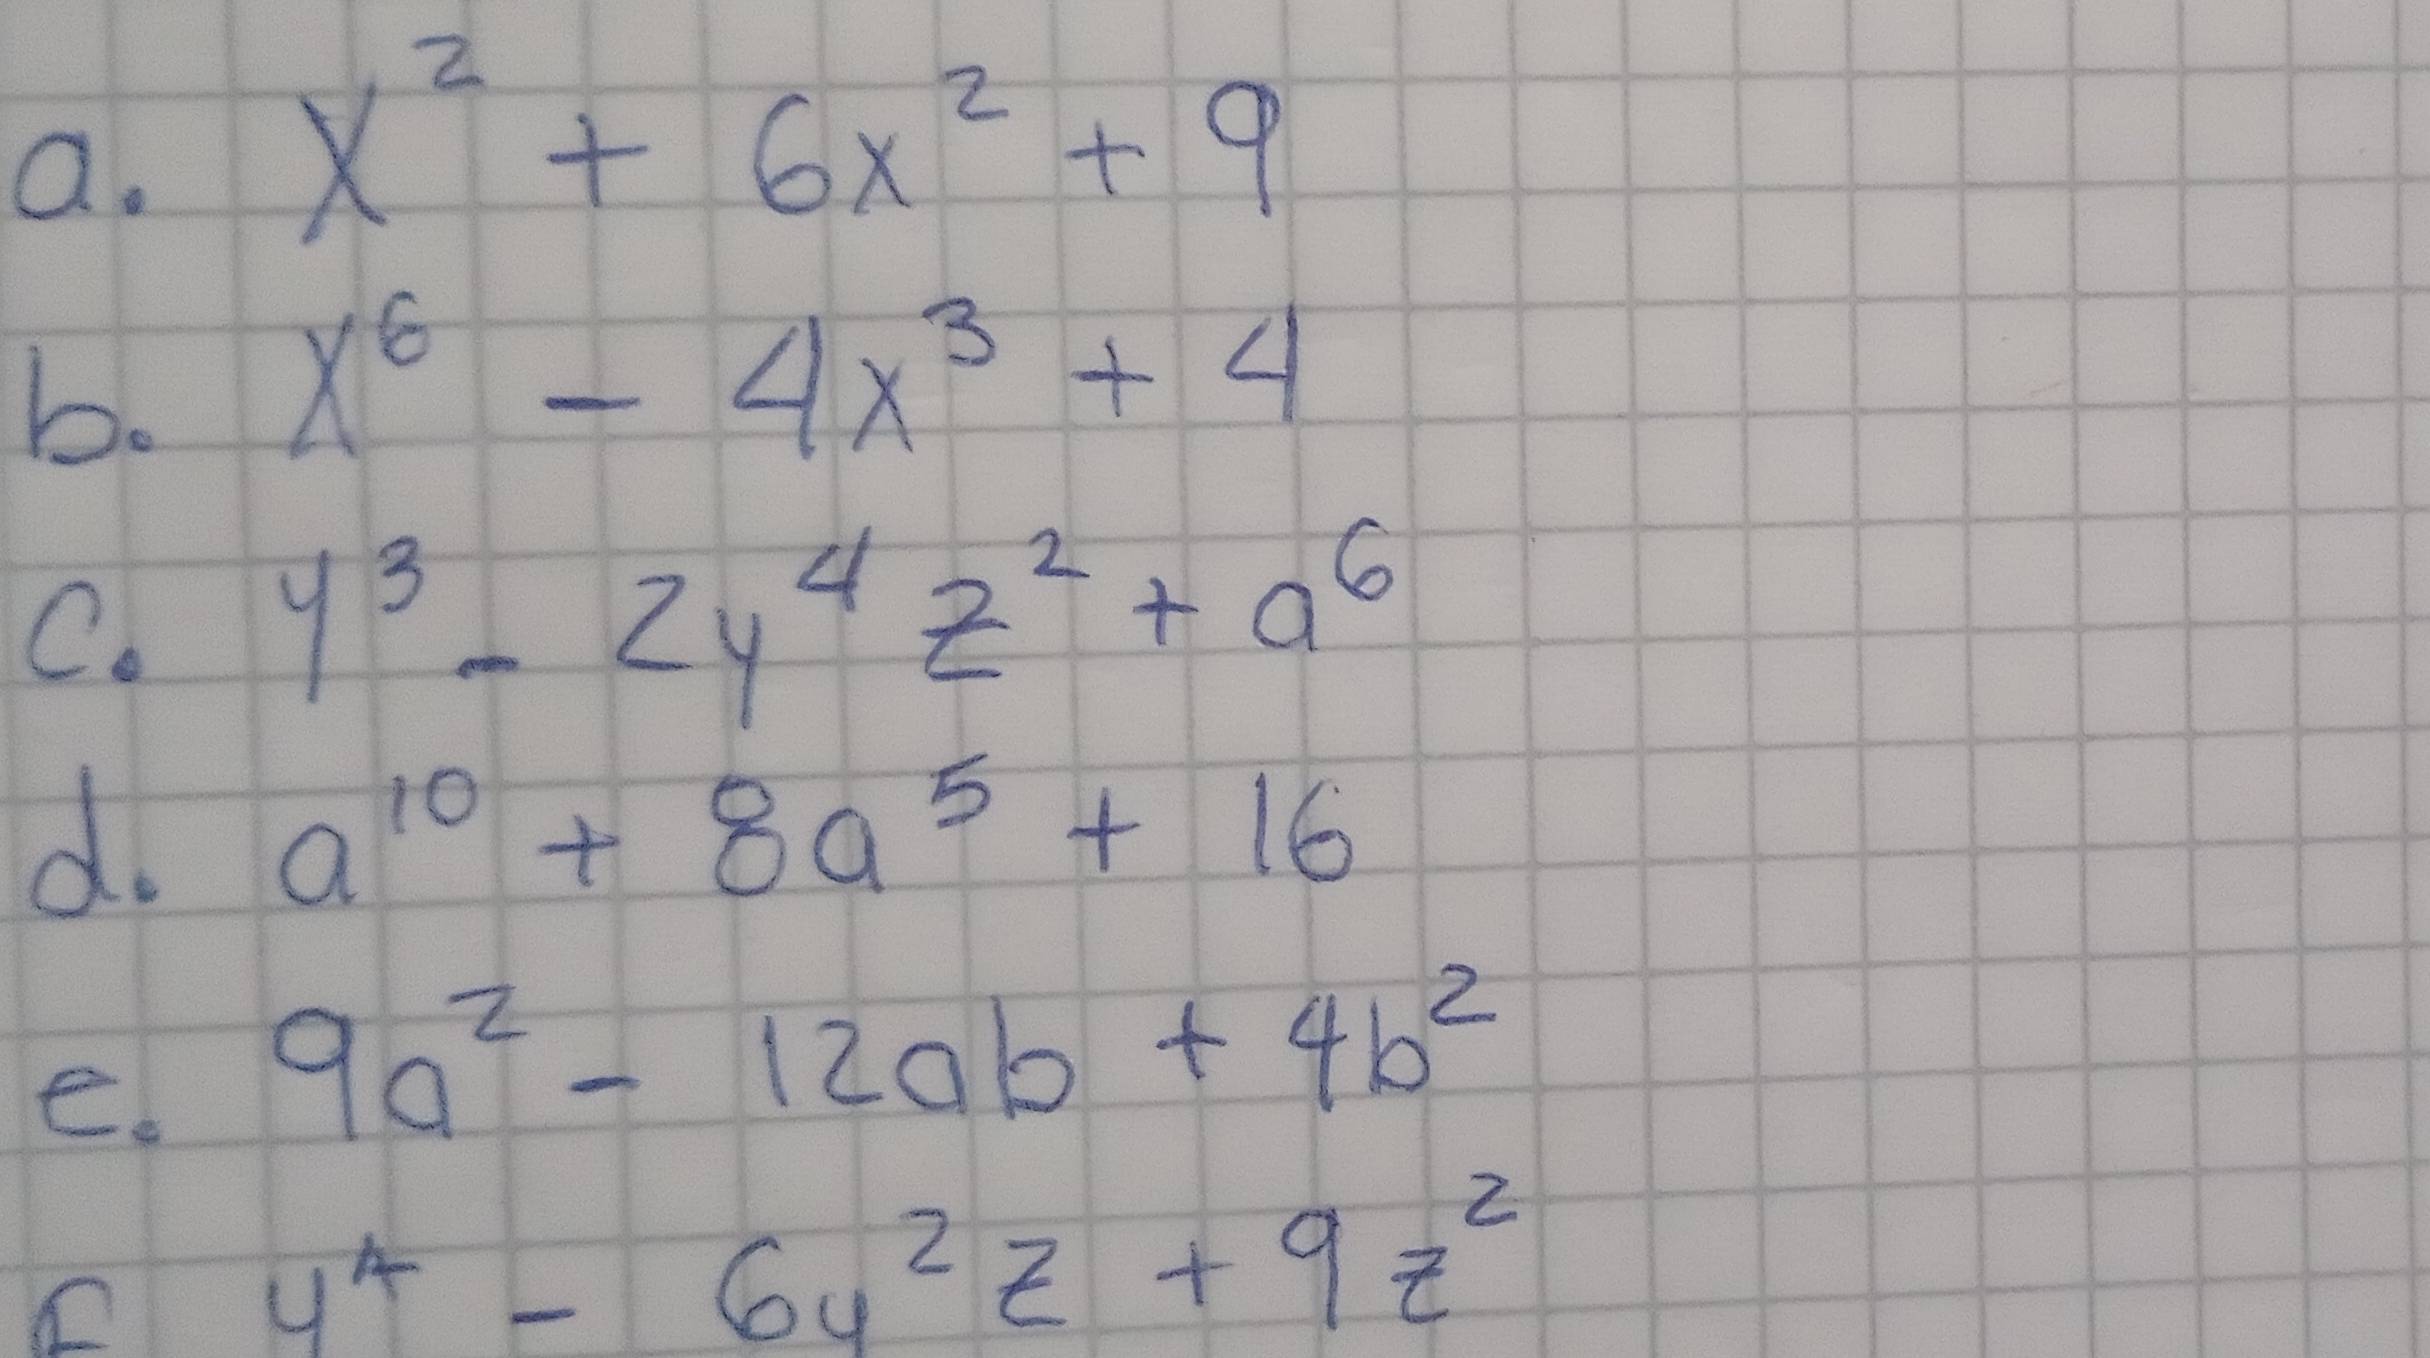 a. x² + 6x² + 9
b. x⁶ - 4x³ + 4
c. y³ - 2y⁴z² + a⁶
d. a¹⁰ + 8a⁵ + 16
e. 9a² - 12ab + 4b²
f y⁴ - 6y²z + 9z²